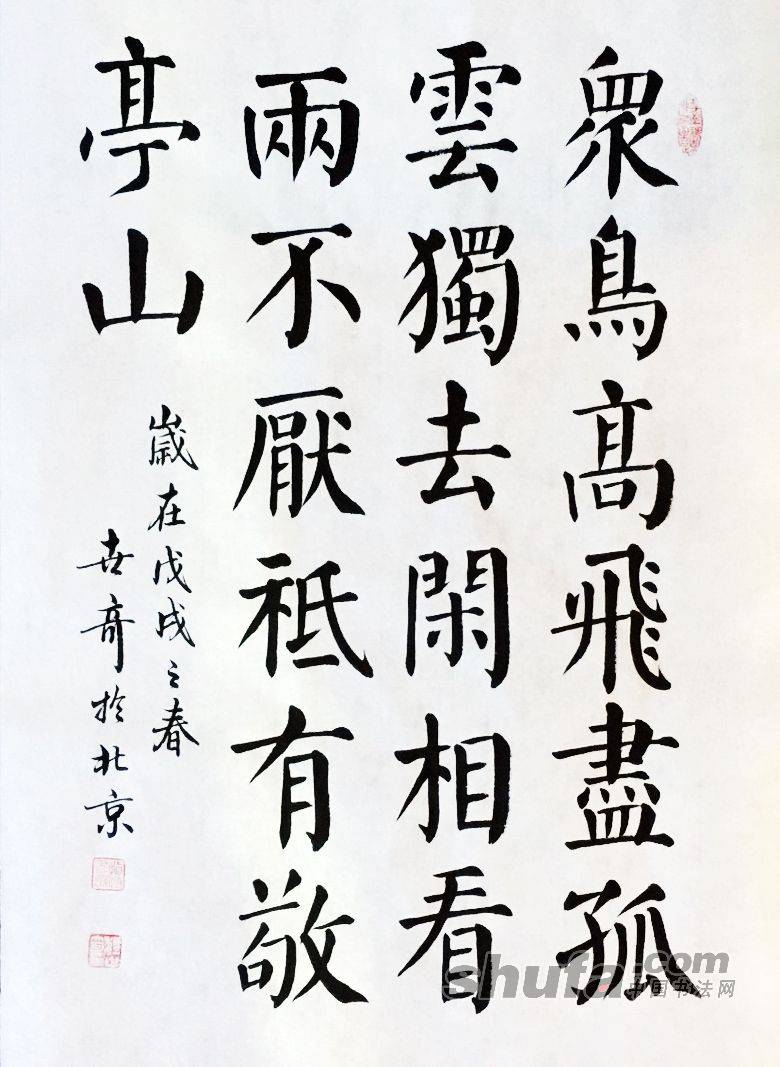 眾鳥高飛盡孤
雲獨去閑相看
兩不厭祗有敬
亭山
歲在戊戌之春
世奇於北京
shufa.com
中国书法网